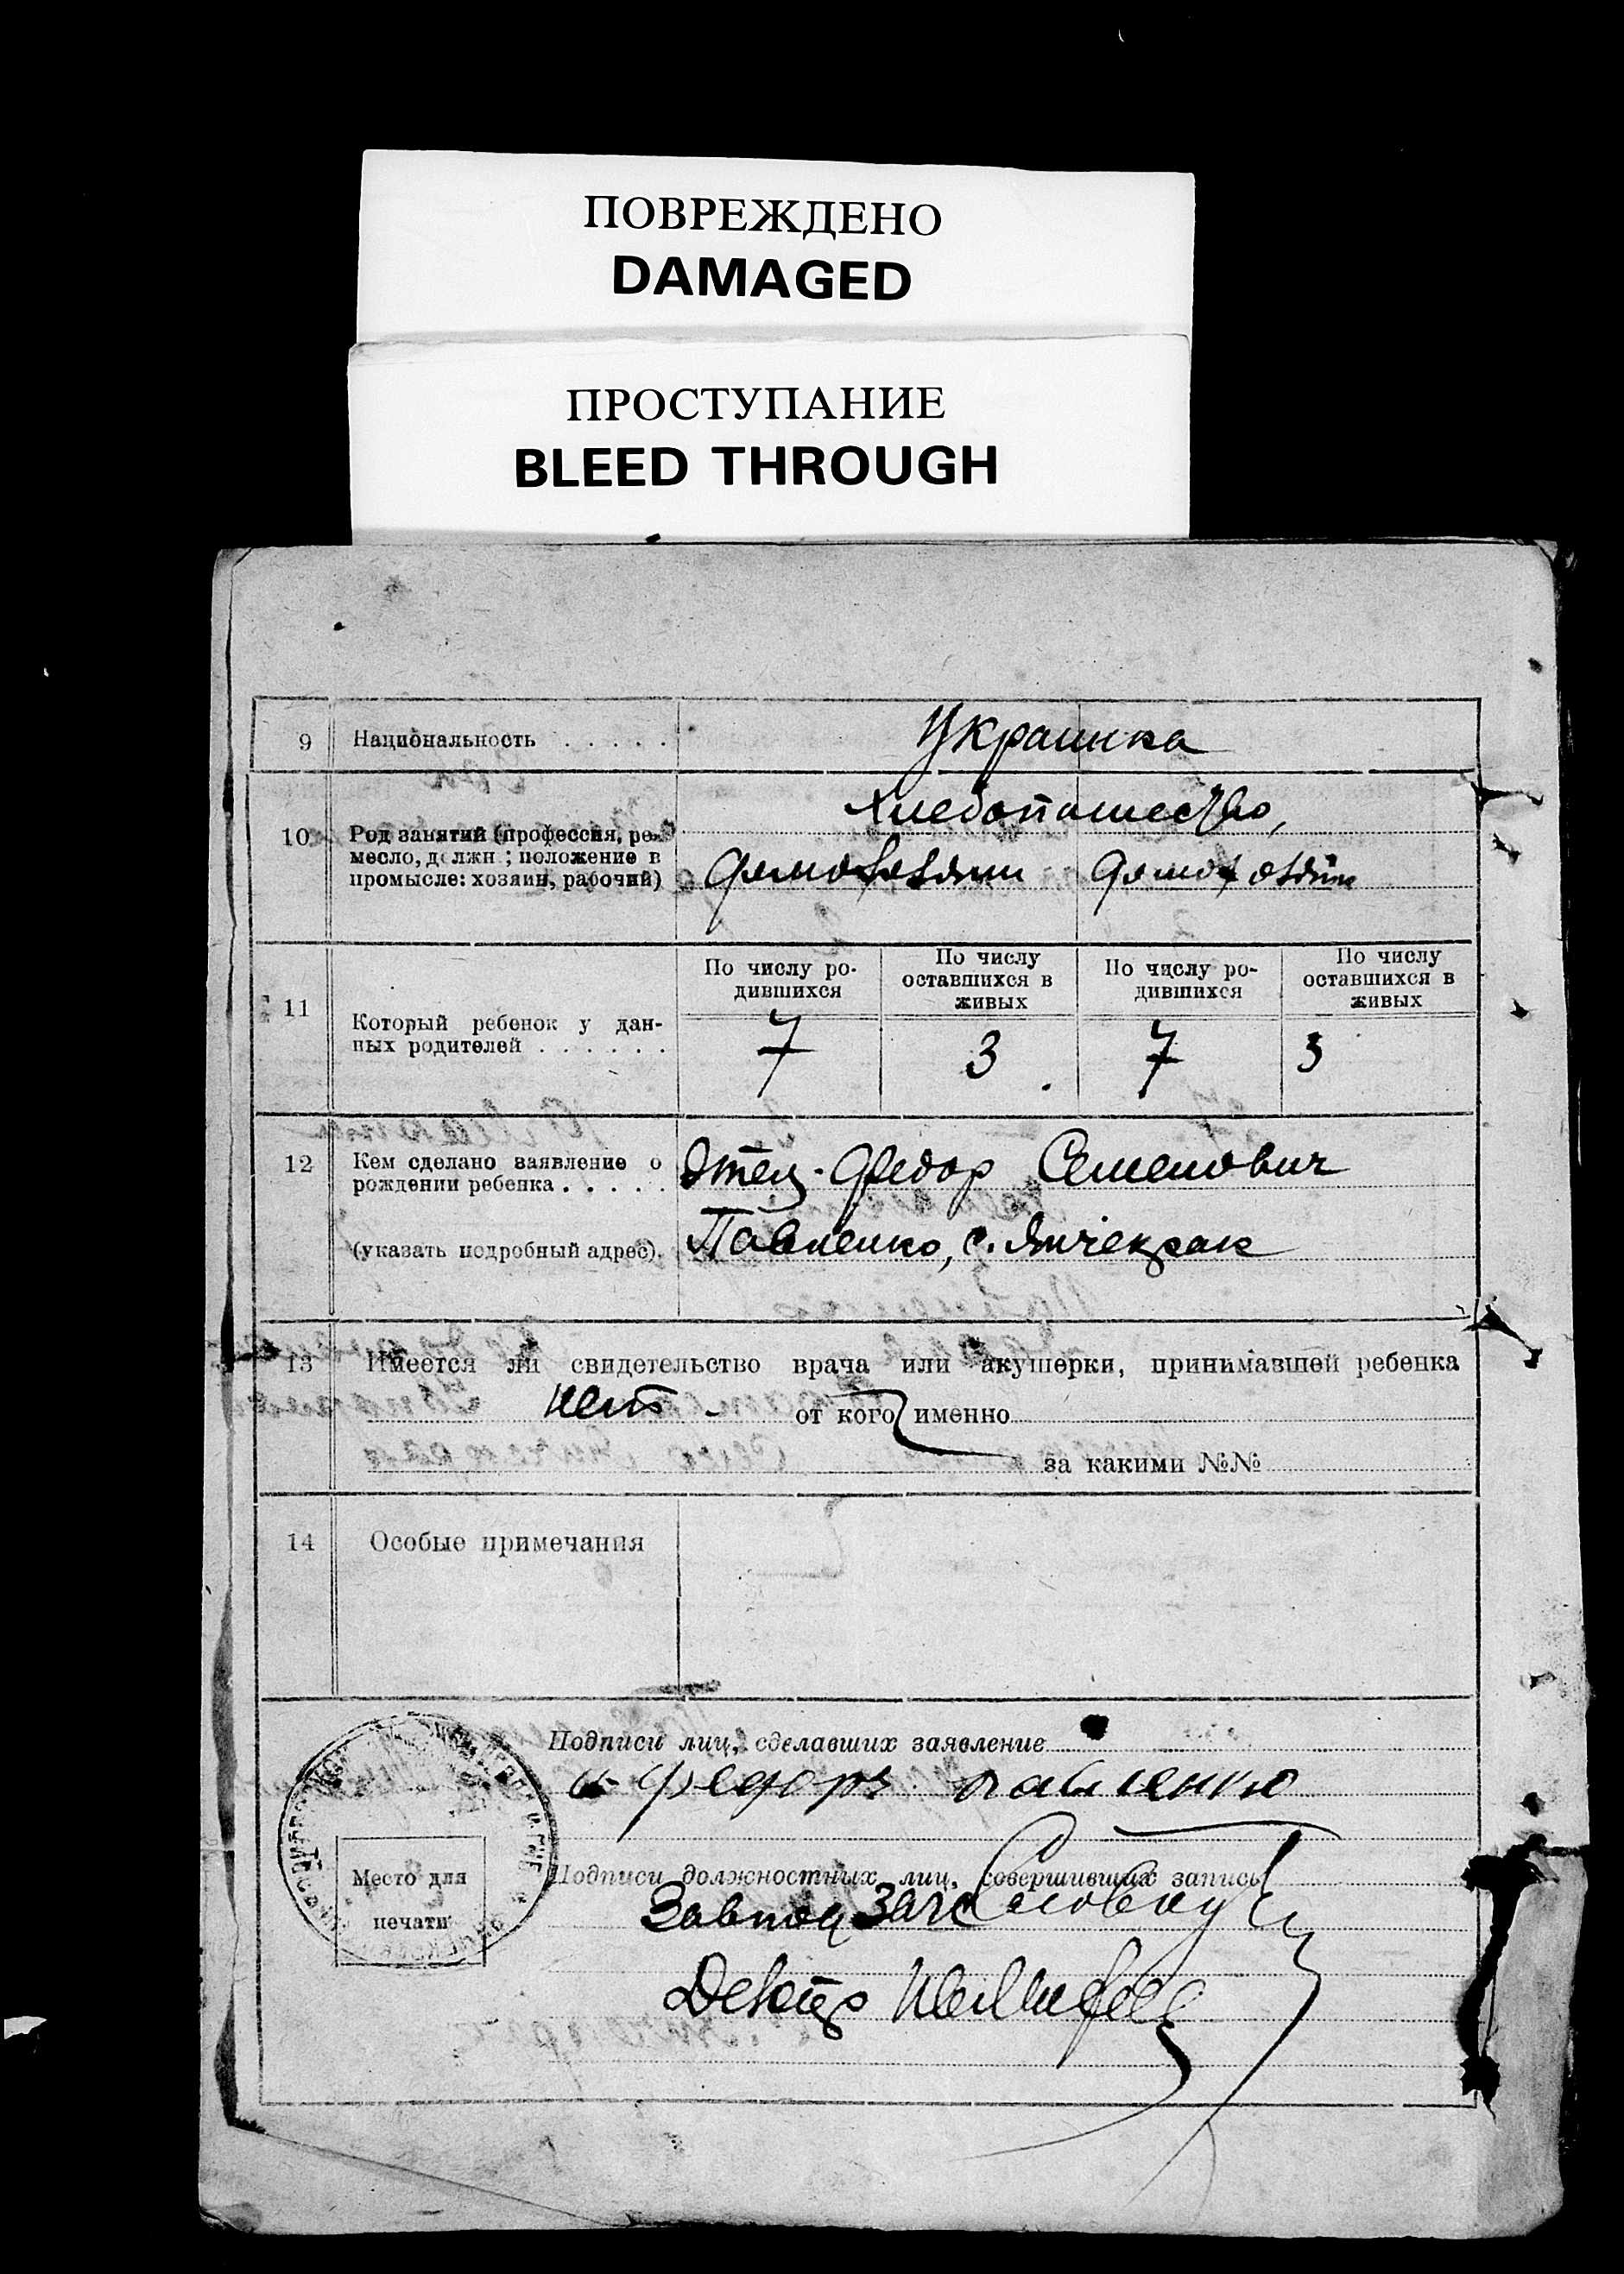 ПОВРЕЖДЕНО
DAMAGED
ПРОСТУПАНИЕ
BLEED THROUGH
9 Национальность . . . . . Украинка
10 Род занятий (профессия, ре-
месло, должн ; положение в
промысле: хозяин, рабочий)
Хлебопашество,
домохозяин домохозяин
11 Который ребенок у дан-
ных родителей . . . . . .
По числу ро-
дившихся
По числу
оставшихся в
живых
По числу ро-
дившихся
По числу
оставшихся в
живых
7 3 7 3
12 Кем сделано заявление о
рождении ребенка . . . . .
(указать подробный адрес).
Отец Федор Семенович
Павленко, с. Янчекрак
13 Имеется ли свидетельство врача или акушерки, принимавшей ребенка
нет от кого именно
за какими №№
14 Особые примечания
Подписи лиц, сделавших заявление
Федоръ павленко
Место для
печати
Подписи должностных лиц, совершивших запись